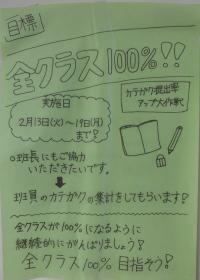 目標
全クラス100%!!
実施日
2月13日(火)〜19日(月)
まで!
カテガク提出率
アップ大作戦
○班長にもご協力
いただきたいです。
↓
班員のカテガクの集計をしてもらいます!
全クラスが100%になるように
継続的にがんばりましょう!
全クラス100%目指そう!